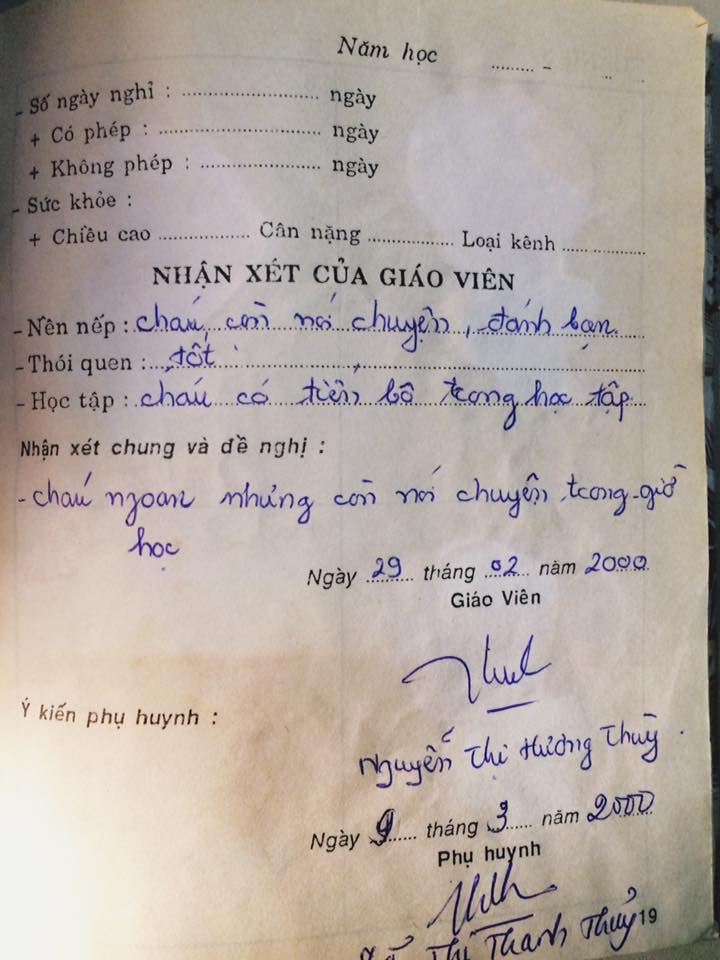 Năm học ......... - ...
- Số ngày nghỉ : .................... ngày
+ Có phép : ........................ ngày
+ Không phép : .................. ngày
- Sức khỏe :
+ Chiều cao ................ Cân nặng ............... Loại kênh ................
NHẬN XÉT CỦA GIÁO VIÊN
- Nền nếp : cháu còn nói chuyện, đánh bạn.
- Thói quen : tốt
- Học tập : cháu có tiến bộ trong học tập
Nhận xét chung và đề nghị :
- cháu ngoan nhưng còn nói chuyện trong giờ
học
Ngày 29 tháng 02 năm 2000
Giáo Viên
Ý kiến phụ huynh :
Nguyễn Thị Hương Thuỳ.
Ngày 9 tháng 3 năm 2000
Phụ huynh
Thị Thanh Thuỷ 19